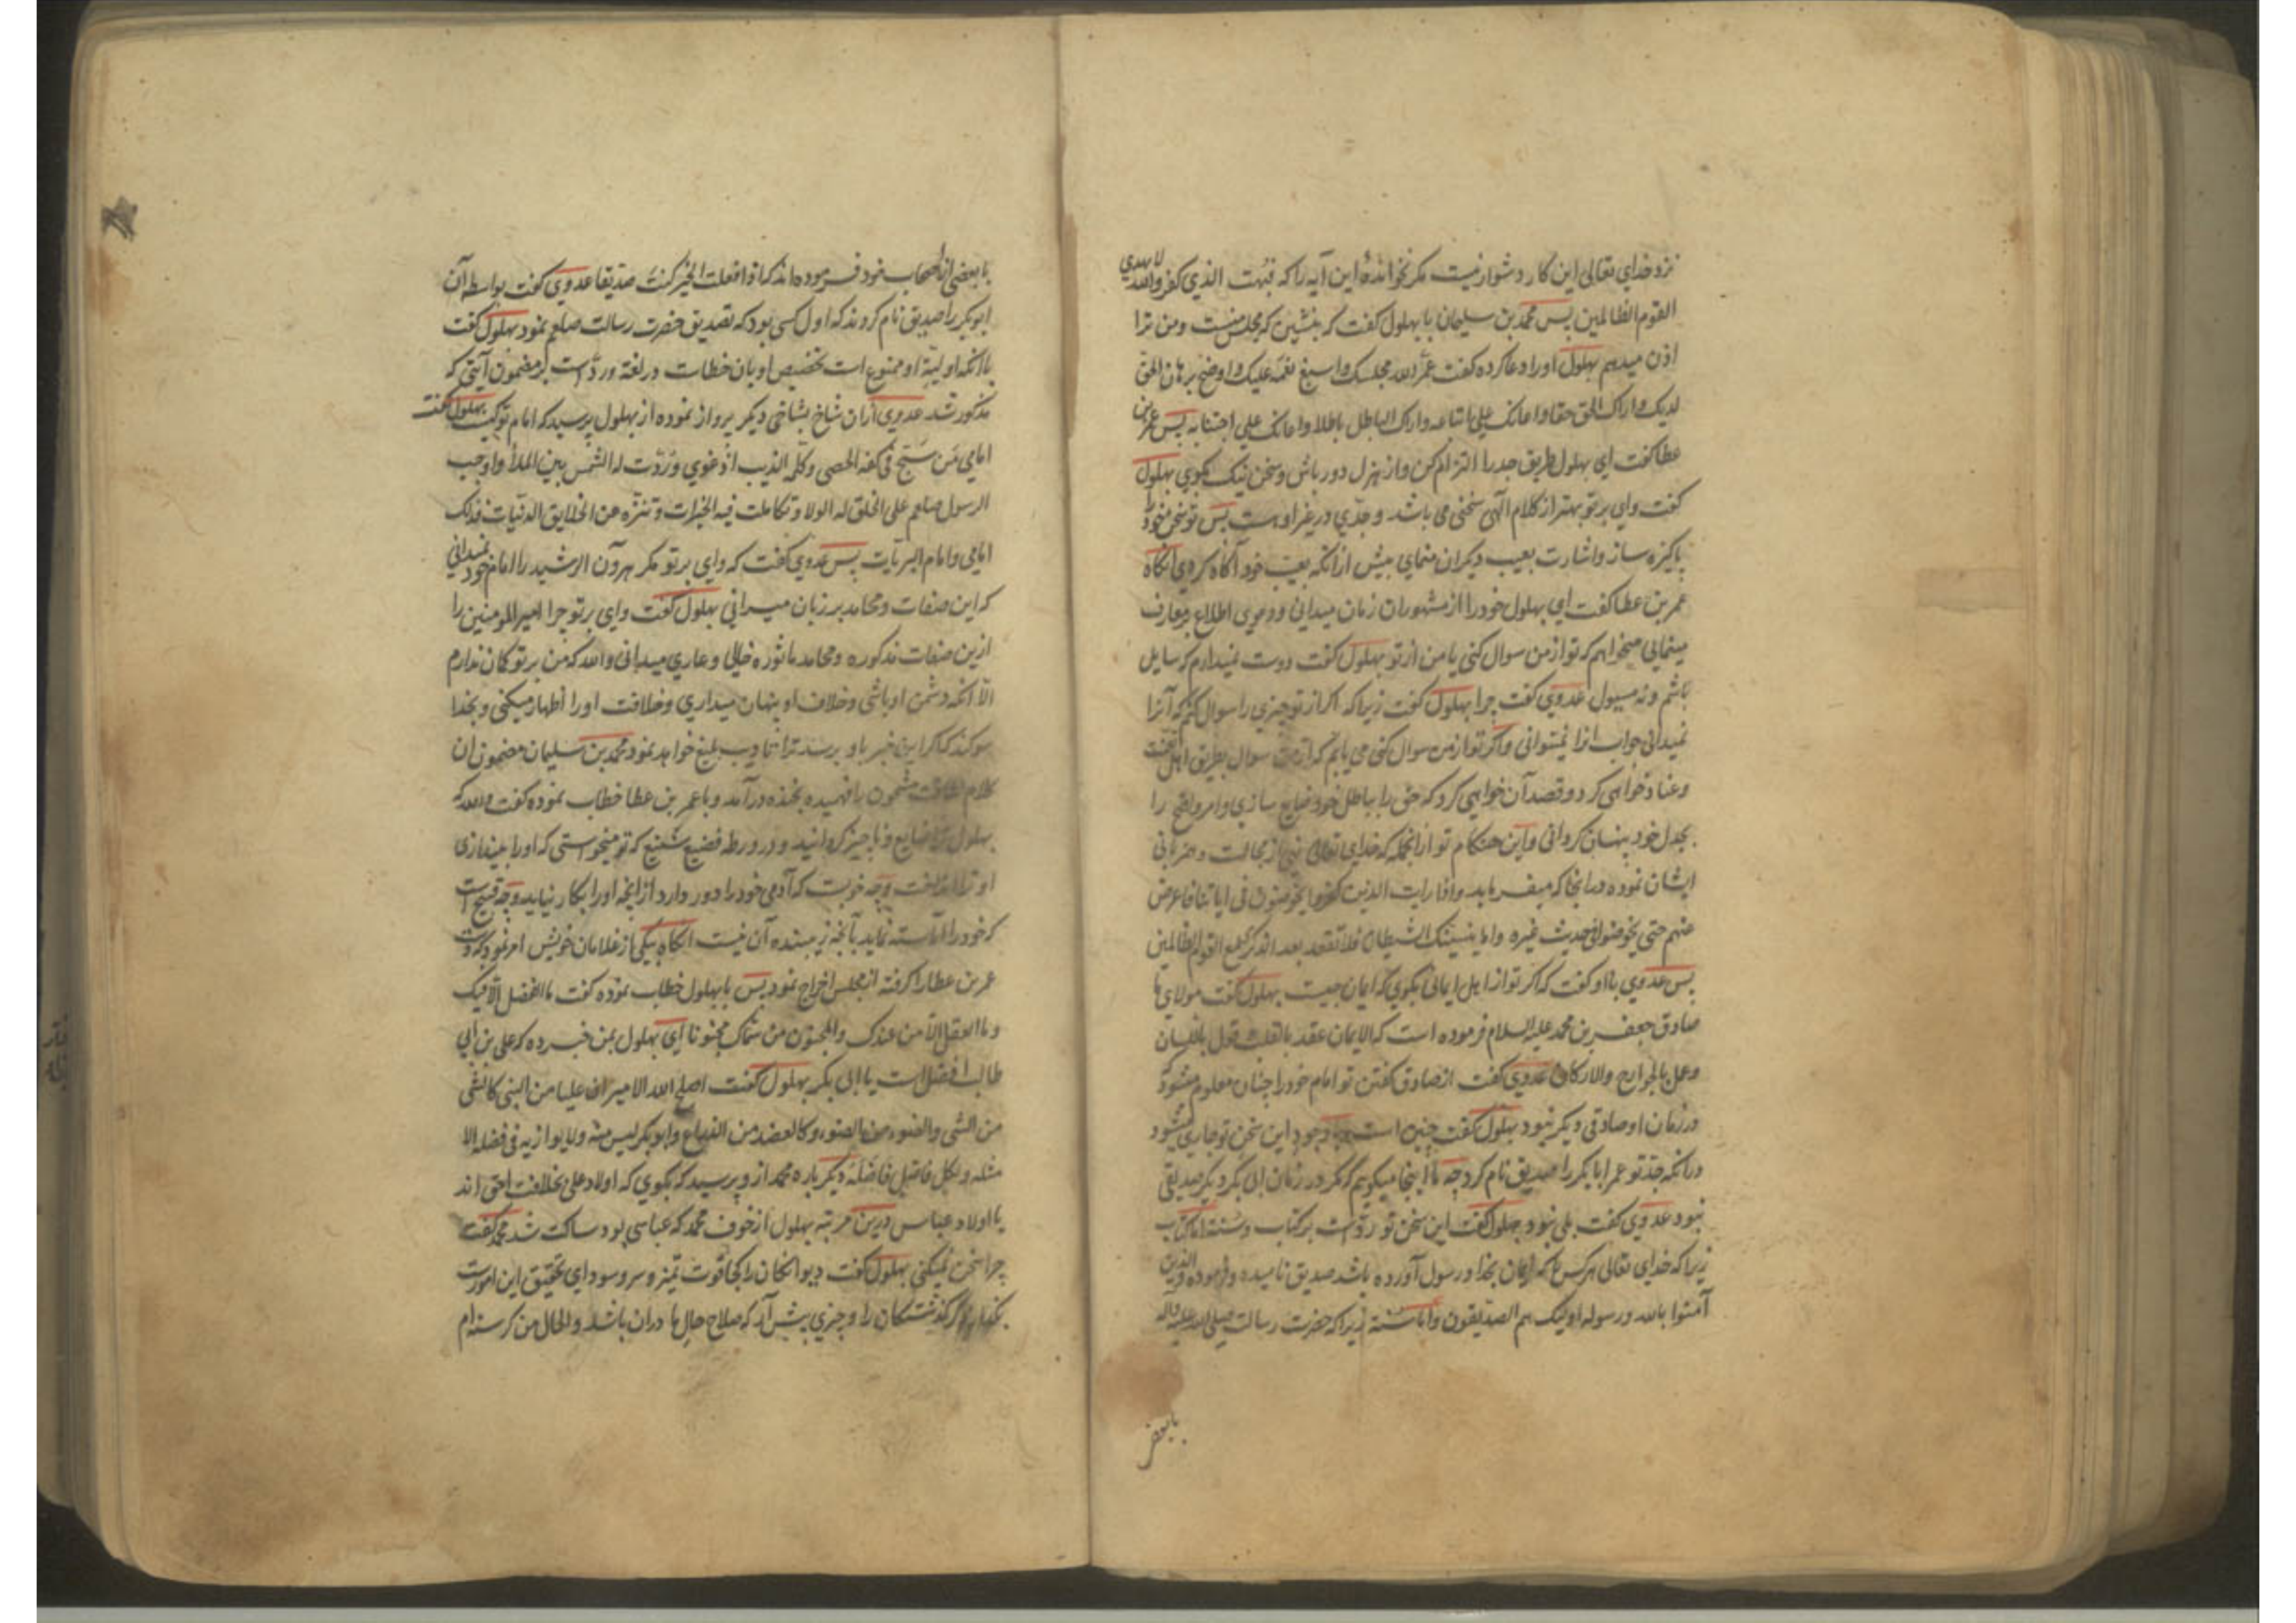 نزد خدای تعالی این کار دشوار نیست مکر نخواندهٔ این آیه را که فبهت الذی کفر والله لا یهدی
القوم الظالمین پس محمد بن سلیمان با بهلول کفت که بنشین که مجلس منست و من ترا
اذن میدهم بهلول اورا دعا کرده کفت عمّر الله مجلسک واسبغ نعمه علیک واوضح برهان الحق
لدیک واراک الحق حقا واعانک علی اتباعه واراک الباطل باطلا واعانک علی اجتنابه پس عمر بن
عطا کفت ای بهلول طریق جد را التزام کن و از هزل دور باش و سخن نیک بکوی بهلول
کفت وای بر تو بهتر از کلام الهی سخنی می باشد و جدّی در غیر او هست پس تو سخن خود را
پاکیزه ساز و اشارت بعیب دیکران منمای پیش ازانکه بعیب خود آکاه کردی انکاه
عمر بن عطا کفت ای بهلول خود را از مشهوران زمان میدانی و دعوی اطلاع بر معارف
مینمایی میخواهم که تو از من سوال کنی یا من از تو بهلول کفت دوست نمیدارم که سایل
باشم و نه مسیول عدوی کفت چرا بهلول کفت زیرا که اکر از تو چیزی را سوال کنم که آنرا
نمیدانی جواب انرا نمیتوانی و اکر تو از من سوال کنی می یابم که آن سوال بطریق اهل تعنت
و عناد خواهی کرد و قصد آن خواهی کرد که حق را بباطل خود ضایع سازی و امر واقع را
بجدل خود پنهان کردانی و این هنکام تو ازانجمله که خدای تعالی نهی از مجالست و همزبانی
ایشان نموده درانجا که میفرماید واذا رایت الذین کفروا یخوضون فی ایاتنا فاعرض
عنهم حتی یخوضوا فی حدیث غیره واما ینسینک الشیطان فلا تقعد بعد الذکری مع القوم الظالمین
پس عدوی با او کفت که اکر تو از اهل ایمانی بکوی که ایمان چیست بهلول کفت مولای ما
صادق جعفر بن محمد علیه السلام فرموده است که الایمان عقد بالقلب قول باللسان
وعمل بالجوارح والارکان عدوی کفت از صادق کفتن تو امام خود را چنان معلوم میشود
در زمان او صادقی دیکر نبود بهلول کفت چنین است و با وجود این سخن تو جاری میشود
درانکه جد تو عمر ابا بکر را صدیق نام کرد چه ما اینجا میکوییم که مکر در زمان ابی بکر دیکر صدیقی
نبود عدوی کفت بلی نبود بهلول کفت این سخن تو ردّ است بر کتاب و سنت اما کتاب
زیرا که خدای تعالی هر کس را که ایمان بخدا و رسول آورده باشد صدیق نامیده و فرموده والذین
آمنوا بالله ورسوله اولیک هم الصدیقون واما سنت زیرا که حضرت رسالت صلی الله علیه واله
بابعضی
با بعضی از اصحاب خود فرموده اند که اذا فعلت الخیر کنت صدیقا عدوی کفت بواسطه آن
ابوبکر را صدیق نام کردند که اول کسی بود که تصدیق حضرت رسالت صلعم نمود بهلول کفت
با انکه اولیّة او ممنوع است تخصیص او بان خطاست در لغة و ردّ است بر مضمون آیتی که
مذکور شد عدوی ازان شاخ بشاخی دیکر پرواز نموده از بهلول پرسید که امام تو کیست بهلول کفت
امامی مَن سَبّح فی کفه الحصی وکلّمه الذیب اذ عوی ورُدّت له الشمس بین الملأ واوجب
الرسول صلعم علی الخلق له الولا وتکاملت فیه الخیرات وتنزّه عن الخلایق الدنیات فذلک
امامی وامام البریات پس عدوی کفت که وای بر تو مکر هرون الرشید را امام خود نمیدانی
که این صفات و محامد بر زبان میرانی بهلول کفت وای بر تو چرا امیرالمومنین را
ازین صفات مذکوره و محامد ماثوره خالی و عاری میدانی والله که من بر تو کمان ندارم
الّا انکه دشمن او باشی و خلاف او پنهان میداری و خلافت اورا اظهار میکنی و بخدا
سوکند که اکر این خبر باو برسد ترا تادیب بلیغ خواهد نمود محمد بن سلیمان مضمون ان
کلام لطافت مشحون را فهمیده بخنده درآمد و با عمر بن عطا خطاب نموده کفت والله که
بهلول ترا ضایع و ناچیز کردانید و در ورطه فضیع شنیع که تو میخواستی که اورا بیندازی
او ترا انداخت و چه خوبست که آدمی خود را دور دارد از انچه اورا بکار نیاید و چه قبیح است
که خود را آراسته نماید بآنچه زیبنده آن نیست انکاه بیکی از غلامان خویش امر نمود که دست
عمر بن عطا را کرفته از مجلس اخراج نمود پس با بهلول خطاب نموده کفت ما الفضل الّا فیک
وما العقل الّا من عندک والمجنون من سمّاک مجنونا ای بهلول بمن خبر ده که علی بن ابی
طالب افضل است یا ابی بکر بهلول کفت اصلح الله الامیر ان علیا من النبی کالشی
من الشی والضوء من الضوء وکالعضد من الذراع وابوبکر لیس منه ولا یوازیه فی فضله الا
مثله ولکل فاضل فاضله دیکر باره محمد ازو پرسید که بکوی که اولاد علی بخلافت احق اند
یا اولاد عباس درین مرتبه بهلول از خوف محمد که عباسی بود ساکت شد محمد کفت
چرا سخن نمیکنی بهلول کفت دیوانکان را کجا قوت تمیز و سر و سودای تحقیق این امورست
بکذار ذکر کذشتکان را و چیزی پیش آر که صلاح حال ما دران باشد والحال من کرسنه ام